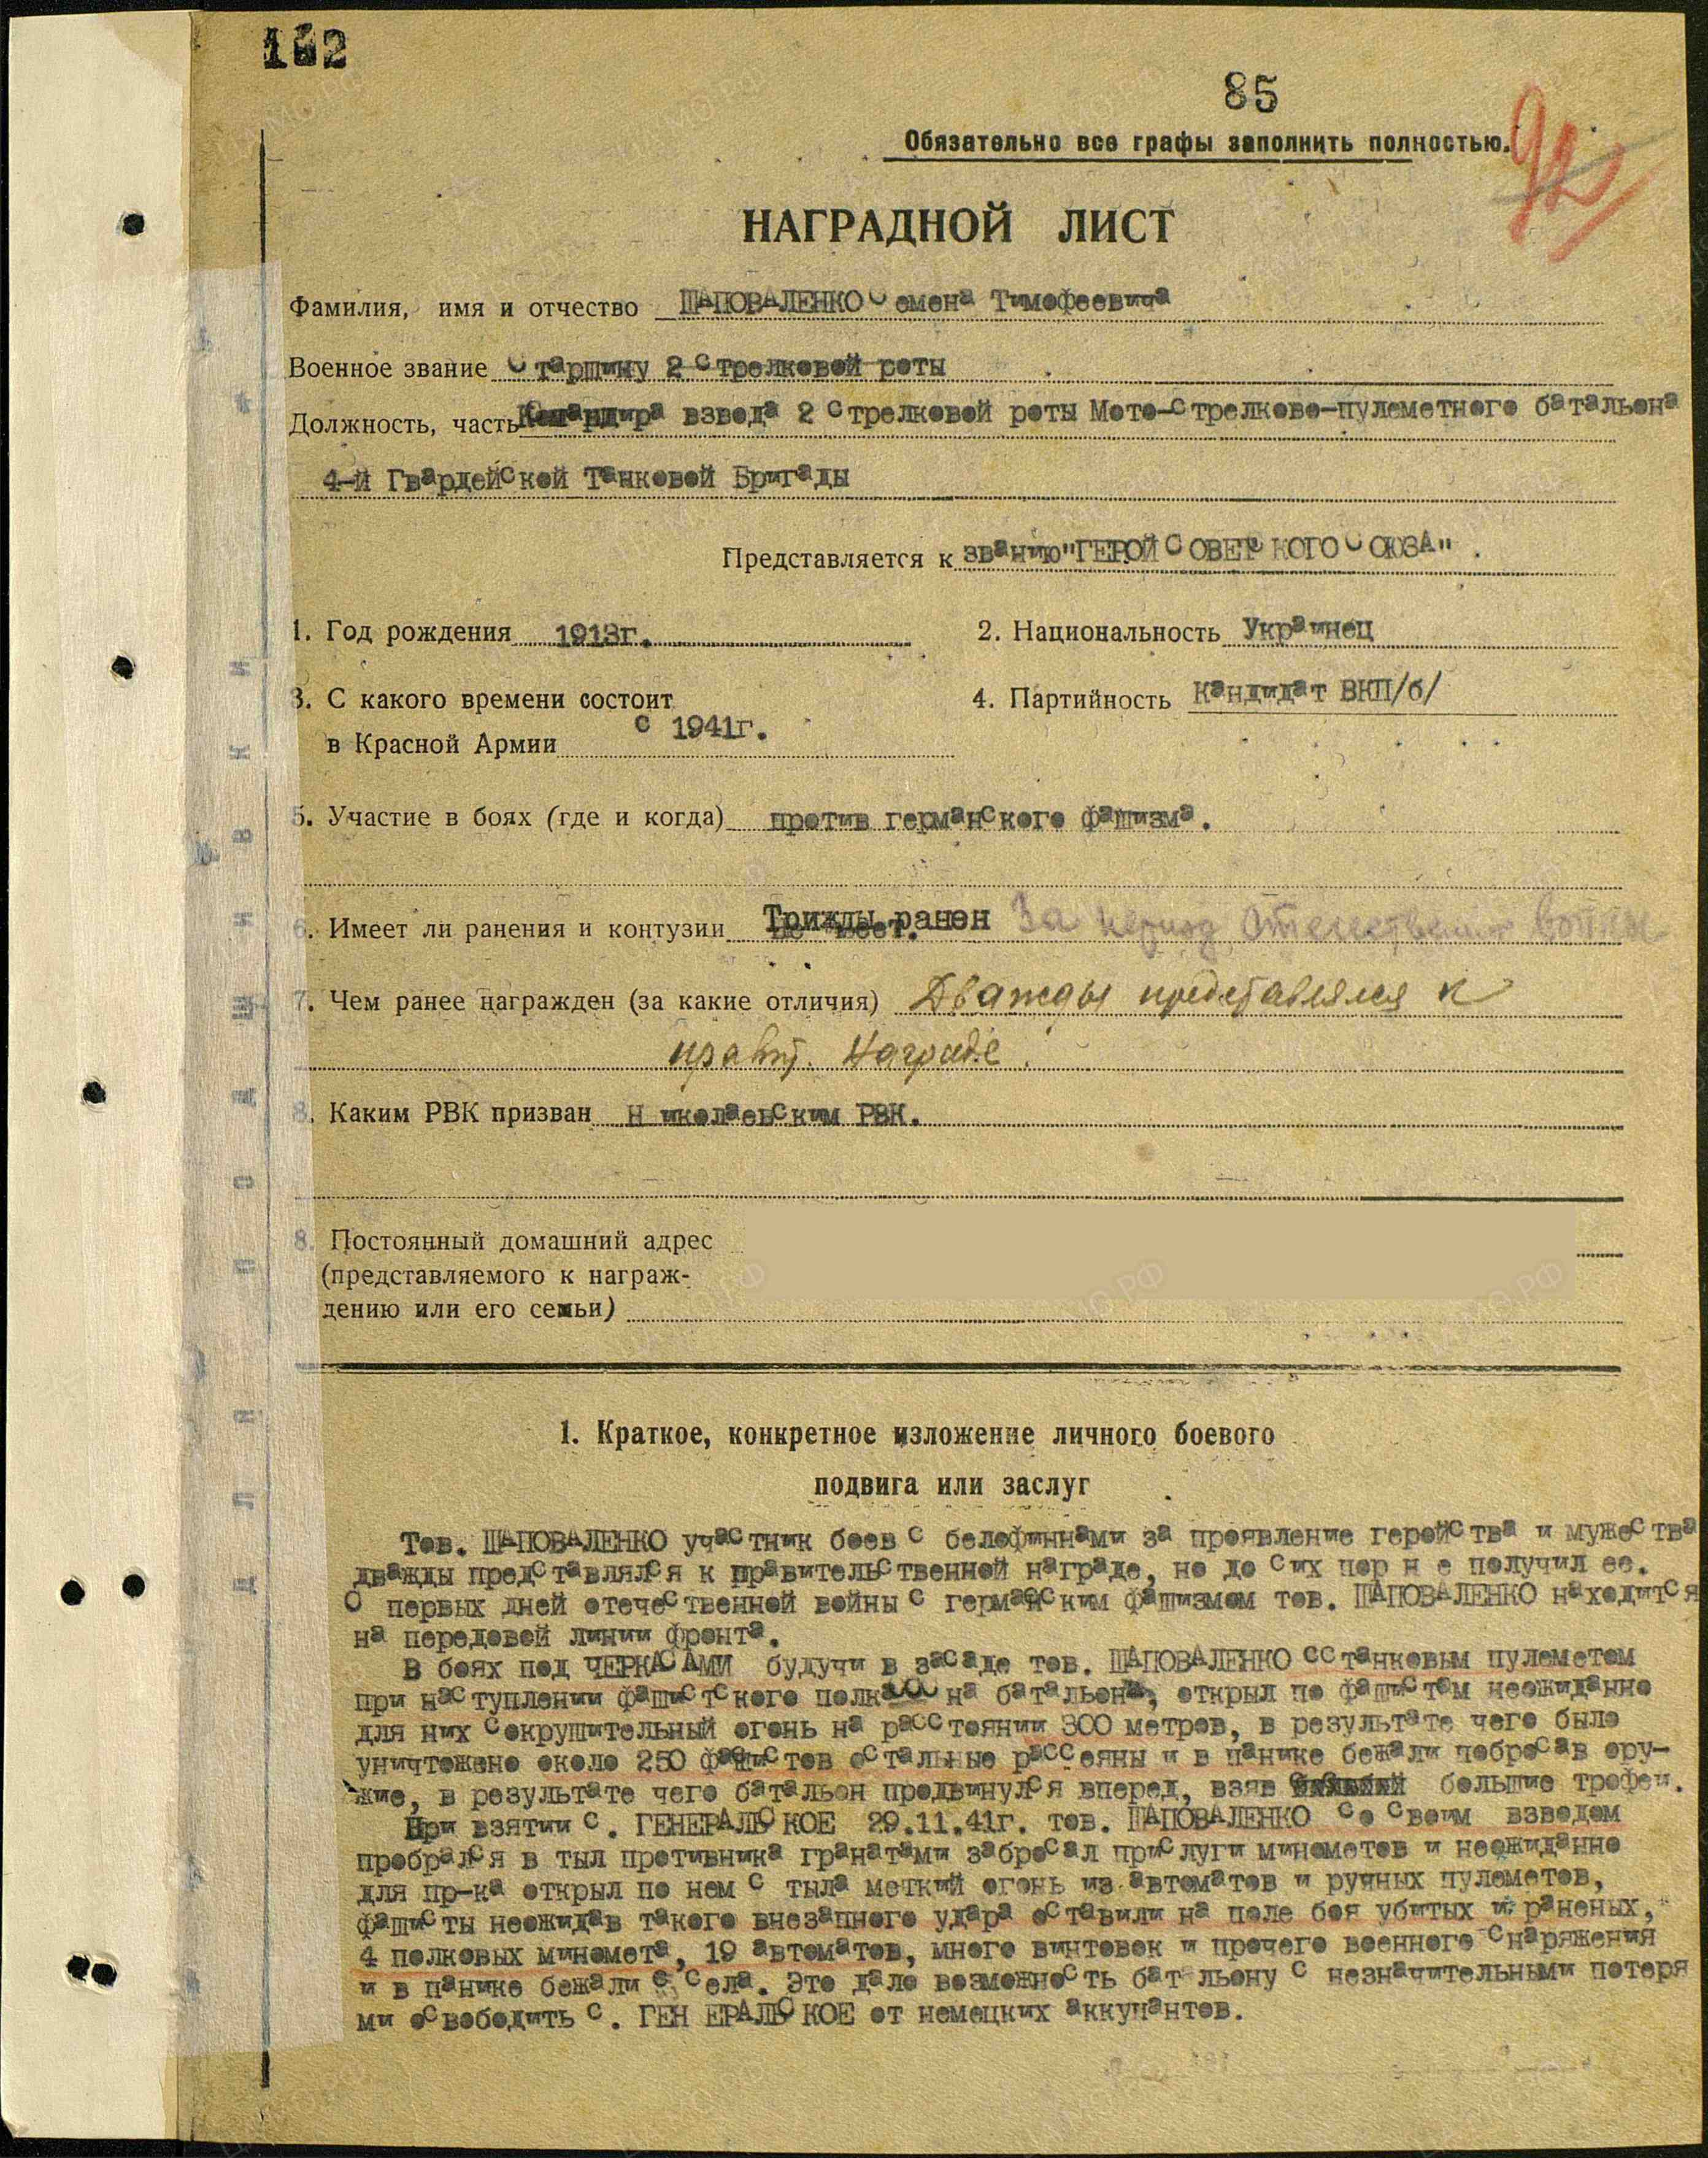 182
85
Обязательно все графы заполнить полностью.
92
НАГРАДНОЙ ЛИСТ
Фамилия, имя и отчество ШАПОВАЛЕНКО Семена Тимофеевича
Военное звание Старшину 2 стрелковой роты
Должность, часть Командира взвода 2 стрелковой роты Мото-стрелково-пулеметного батальона
4-й Гвардейской Танковой Бригады
Представляется к званию "ГЕРОЙ СОВЕТСКОГО СОЮЗА".
1. Год рождения 1913г.
2. Национальность Украинец
3. С какого времени состоит
в Красной Армии с 1941г.
4. Партийность Кандидат ВКП/б/
5. Участие в боях (где и когда) против германского фашизма.
6. Имеет ли ранения и контузии Трижды ранен За период Отечественной войны
7. Чем ранее награжден (за какие отличия) Дважды представлялся к
правит. награде.
8. Каким РВК призван Николаевским РВК.
8. Постоянный домашний адрес
(представляемого к награж-
дению или его семьи)
1. Краткое, конкретное изложение личного боевого
подвига или заслуг
Тов. ШАПОВАЛЕНКО участник боев с белофиннами за проявление геройства и мужества
дважды представлялся к правительственной награде, но до сих пор н е получил ее.
С первых дней отечественной войны с германским фашизмом тов. ШАПОВАЛЕНКО находится
на передовой линии фронта.
В боях под ЧЕРКАСАМИ будучи в засаде тов. ШАПОВАЛЕНКО с станковым пулеметом
при наступлении фашистского полка на батальон, открыл по фашистам неожиданно
для них сокрушительный огонь на расстоянии 300 метров, в результате чего было
уничтожено около 250 фашистов остальные рассеяны и в панике бежали побросав ору-
жие, в результате чего батальон продвинулся вперед, взяв большие трофеи.
При взятии с. ГЕНЕРАЛЬСКОЕ 29.11.41г. тов. ШАПОВАЛЕНКО со своим взводом
пробрался в тыл противника гранатами забросал прислуги минометов и неожиданно
для пр-ка открыл по нем с тыла меткий огонь из автоматов и ручных пулеметов,
фашисты неожидав такого внезапного удара оставили на поле боя убитых и раненых,
4 полковых миномета, 19 автоматов, много винтовок и прочего военного снаряжения
и в панике бежали с села. Это дало возможность батльону с незначительными потеря
ми освободить с. ГЕН ЕРАЛЬСКОЕ от немецких аккупантов.